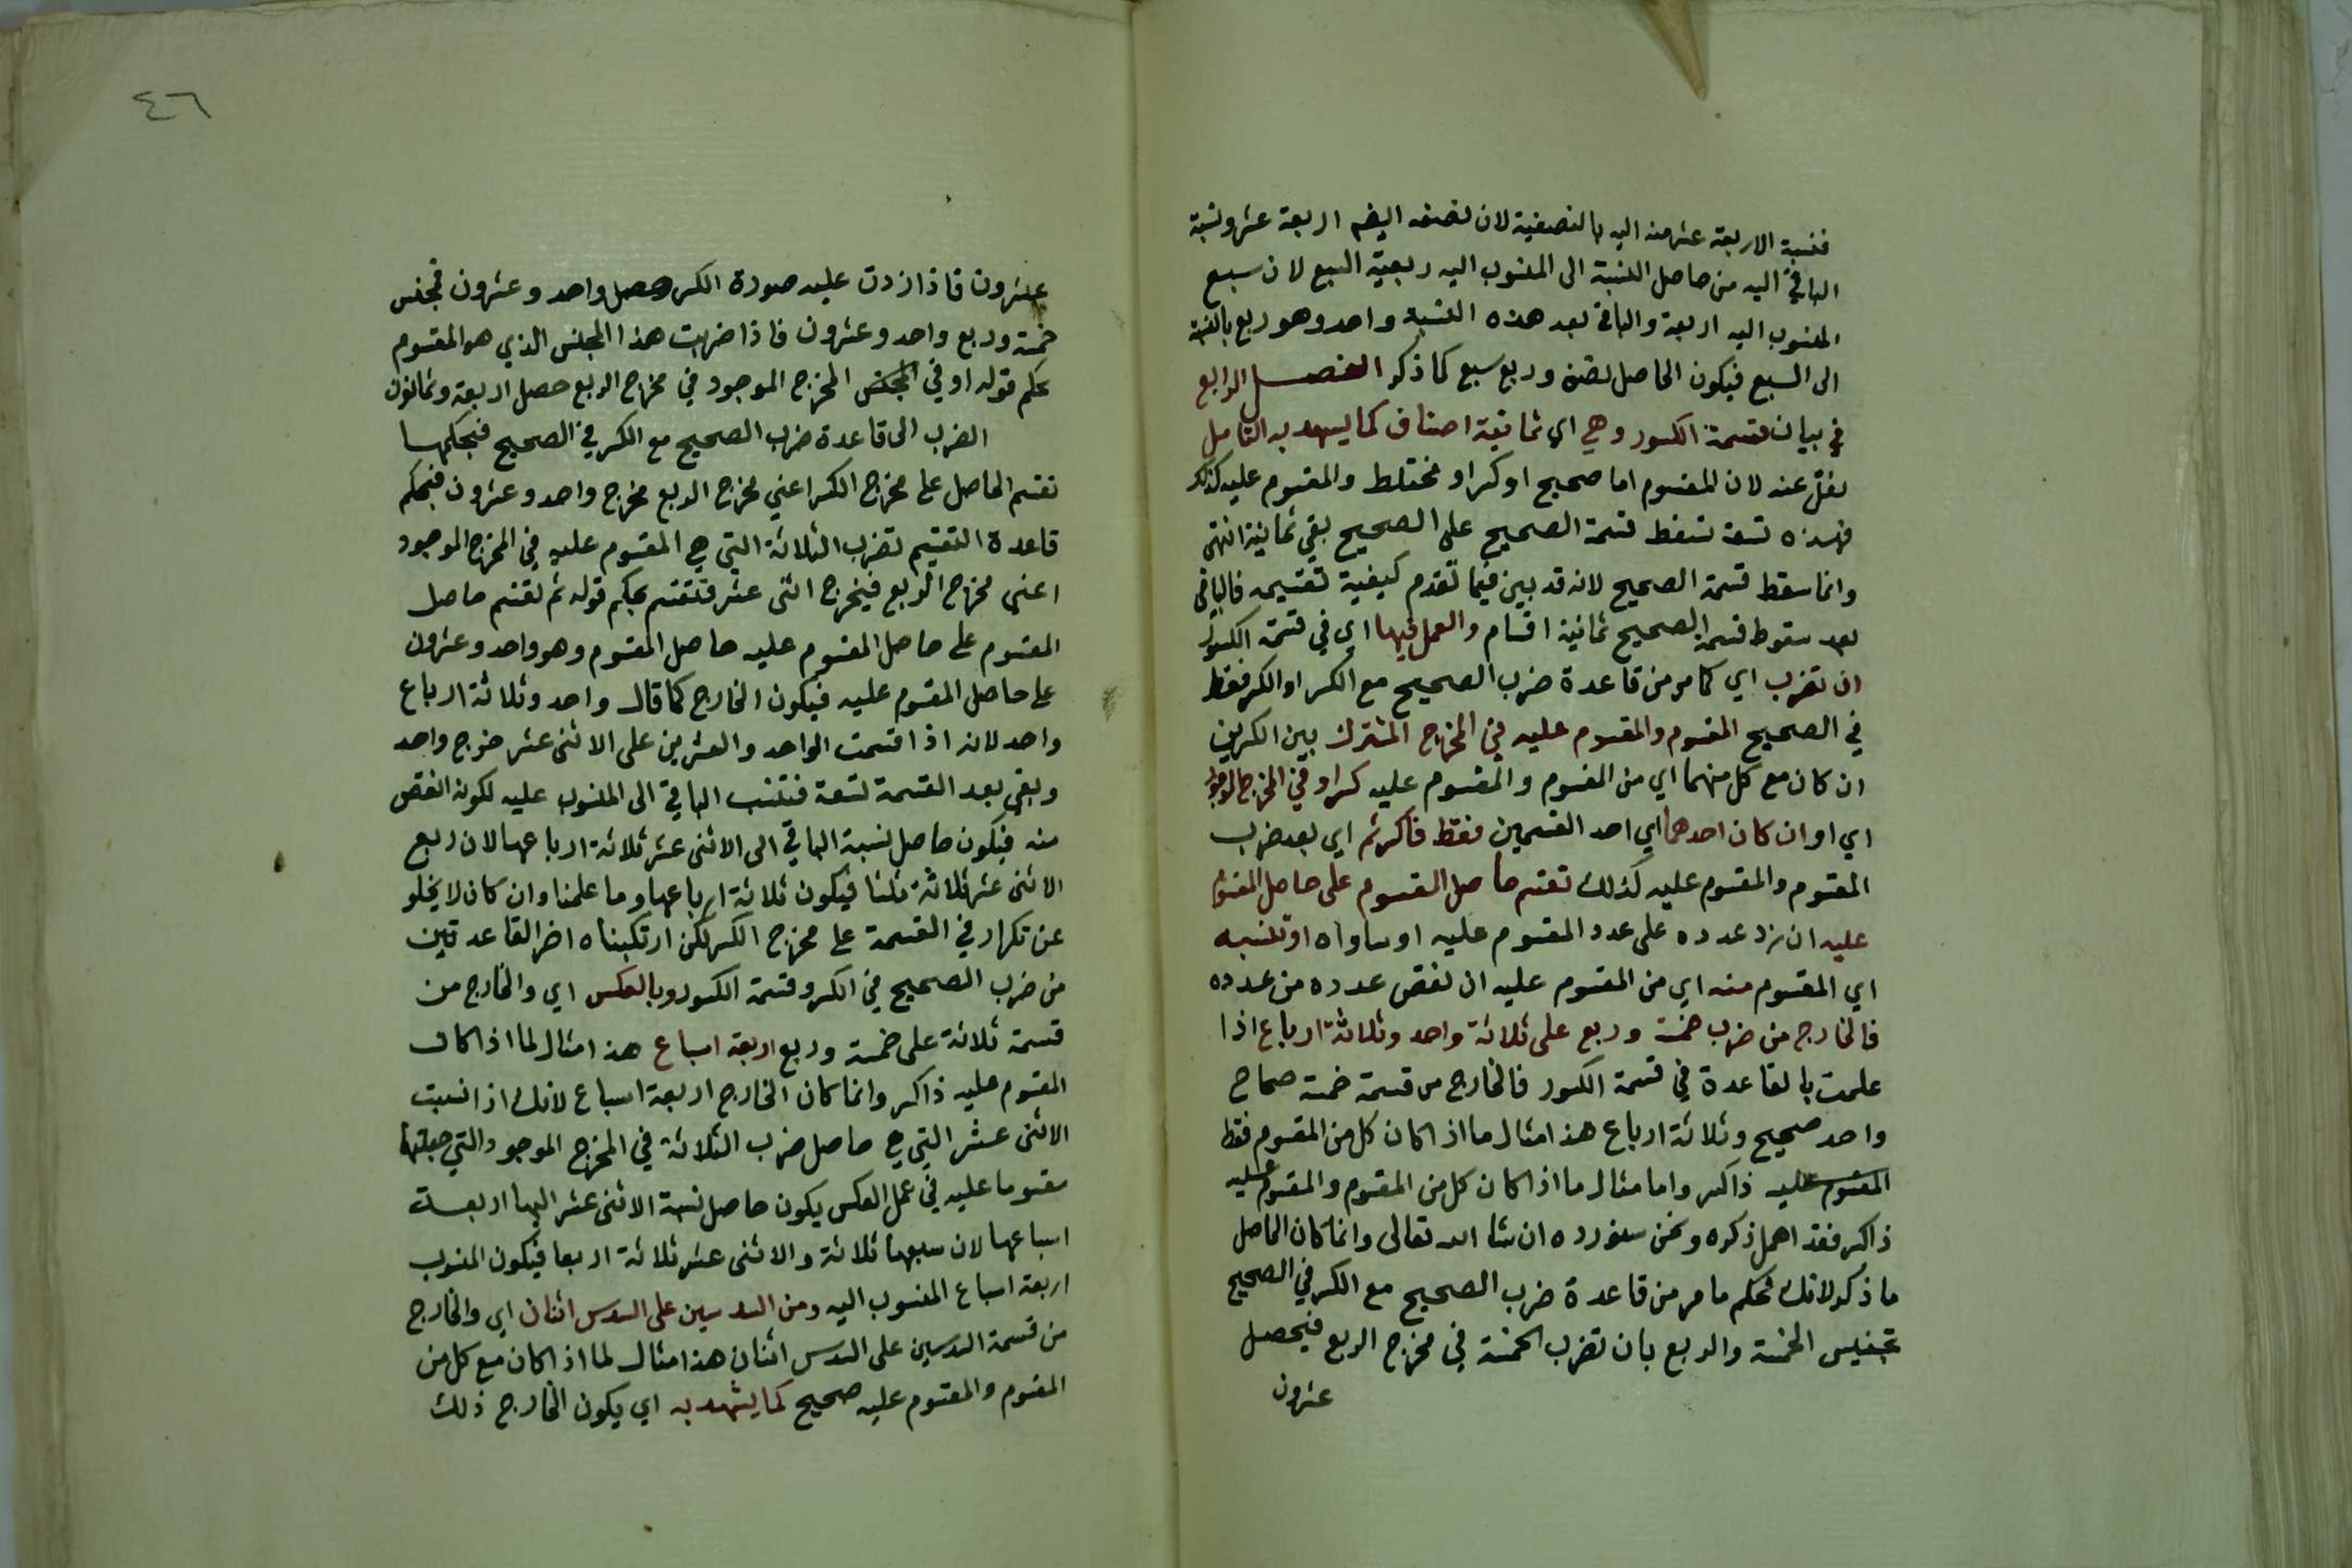 فنسبة الاربعة عشر منه اليه بالنصفية لان نصفه اليضم اربعة عشر ونسبة
الباقي اليه من حاصل النسبة الى المنسوب اليه ربعية السبع لان سبع
المنسوب اليه اربعة والباقي بعد هذه النسبة واحد وهو ربع بالنسبة
الى السبع فيكون الحاصل نصف وربع سبع كما ذكر الفصل الرابع
في بيان قسمة الكسور وهي اي ثمانية اصناف كما يشهد به التامل
نقل عنه لان المقسوم اما صحيح او كسر او مختلط والمقسوم عليه كذلك
فهذه تسعة تسقط قسمة الصحيح على الصحيح بقي ثمانية انتهى
وانما سقط قسمة الصحيح لانه قد بين فيما تقدم كيفية تقسيمه فالباقي
بعد سقوط قسمة الصحيح ثمانية اقسام والعمل فيها اي في قسمة الكسور
ان تضرب اي كما مر من قاعدة ضرب الصحيح مع الكسر او الكسر فقط
في الصحيح المقسوم والمقسوم عليه في المخرج المشترك بين الكسرين
ان كان مع كل منهما اي من المقسوم والمقسوم عليه كسر او في المخرج الموجود
اي او ان كان احدهما اي احد القسمين فقط ذا كسر ثم اي بعد ضرب
المقسوم والمقسوم عليه كذلك تقسم حاصل المقسوم على حاصل المقسوم
عليه ان زد عدده على عدد المقسوم عليه او ساواه او تنسبه
اي المقسوم منه اي من المقسوم عليه ان نقص عدده من عدده
فالخارج من ضرب خمسة وربع على ثلاثة واحد وثلاثة ارباع اذا
علمت بالقاعدة في قسمة الكسور فالخارج من قسمة خمسة صحاح
واحد صحيح وثلاثة ارباع هذا مثال ما اذا كان كل من المقسوم فقط
المقسوم عليه ذا كسر واما مثال ما اذا كان كل من المقسوم والمقسوم عليه
ذا كسر فقد اهمل ذكره ونحن سنورده ان شا الله تعالى وانما كان الحاصل
ما ذكر لانك تحكم ما مر من قاعدة ضرب الصحيح مع الكسر في الصحيح
تجنيس الخمسة والربع بان تضرب الخمسة في مخرج الربع فيحصل
عشرون
٤٦
عشرون فاذا زدت عليه صورة الكسر حصل واحد وعشرون فمجنس
خمسة وربع واحد وعشرون فاذا ضربت هذا المجنس الذي هو المقسوم
بحكم قوله او في المخرج الموجود في مخرج الربع حصل اربعة وثمانون
الضرب الى قاعدة ضرب الصحيح مع الكسر في الصحيح فبحكمها
تقسم الحاصل على مخرج الكسر اعني مخرج الربع مخرج واحد وعشرون فبحكم
قاعدة التقسيم تضرب الثلاثة التي هي المقسوم عليه في المخرج الموجود
اعني مخرج الربع فيخرج اثنى عشر فتقسم بحكم قوله ثم تقسم حاصل
المقسوم على حاصل المقسوم عليه حاصل المقسوم وهو واحد وعشرون
على حاصل المقسوم عليه فيكون الخارج كما قال واحد وثلاثة ارباع
واحد لانه اذا قسمت الواحد والعشرين على الاثنى عشر خرج واحد
وبقي بعد القسمة تسعة فتنسب الباقي الى المنسوب عليه لكونه انقص
منه فيكون حاصل نسبة الباقي الى الاثنى عشر ثلاثة ارباعها لان ربع
الاثنى عشر ثلاثة ثلثا فيكون ثلاثة ارباعها وما علمنا وان كان لا يخلو
عن تكرار في القسمة على مخرج الكسر لكن ارتكبناه اخر القاعدتين
من ضرب الصحيح في الكسر وقسمة الكسور وبالعكس اي والخارج من
قسمة ثلاثة على خمسة وربع اربعة اسباع هذا مثال لما اذا كان
المقسوم عليه ذا كسر وانما كان الخارج اربعة اسباع لانك اذا نسبت
الاثنى عشر التي هي حاصل ضرب الثلاثة في المخرج الموجود التي جعلتها
مقسوما عليه في عمل العكس يكون حاصل نسبة الاثنى عشر اليها اربعة
اسباعها لان سبعها ثلاثة والاثنى عشر ثلاثة اربعا فيكون المنسوب
اربعة اسباع المنسوب اليه ومن السدسين على السدس اثنان اي والخارج
من قسمة السدسين على السدس اثنان هذا مثال لما اذا كان مع كل من
المقسوم والمقسوم عليه صحيح كما يشهد به اي يكون الخارج ذلك